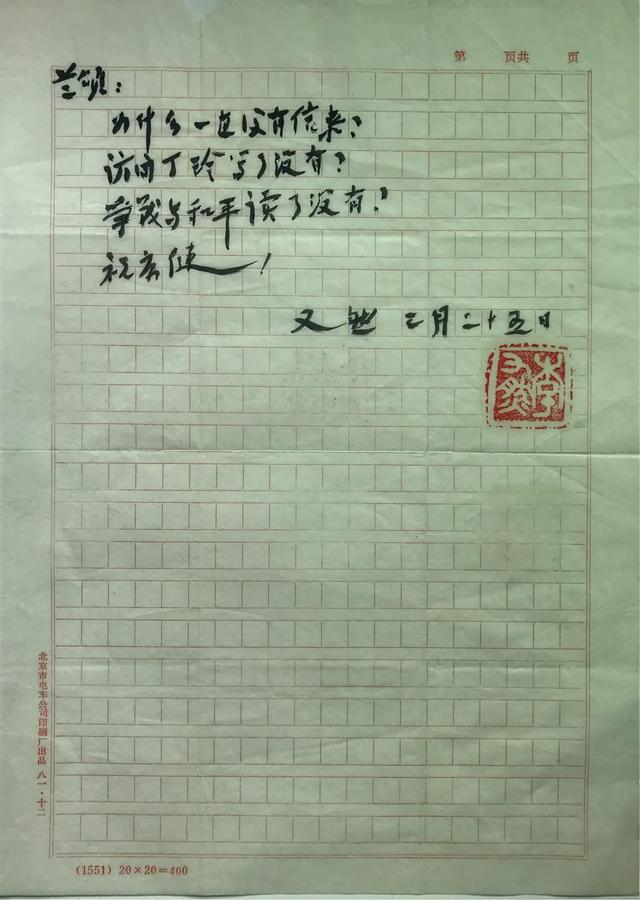 第 页共 页
兰颂：
为什么一直没有信来？
访问丁玲写了没有？
争战与和平读了没有？
祝康健！
又然 三月二十五日
李又然
北京市电车公司印刷厂出品 八一·十二
(1551) 20×20=400